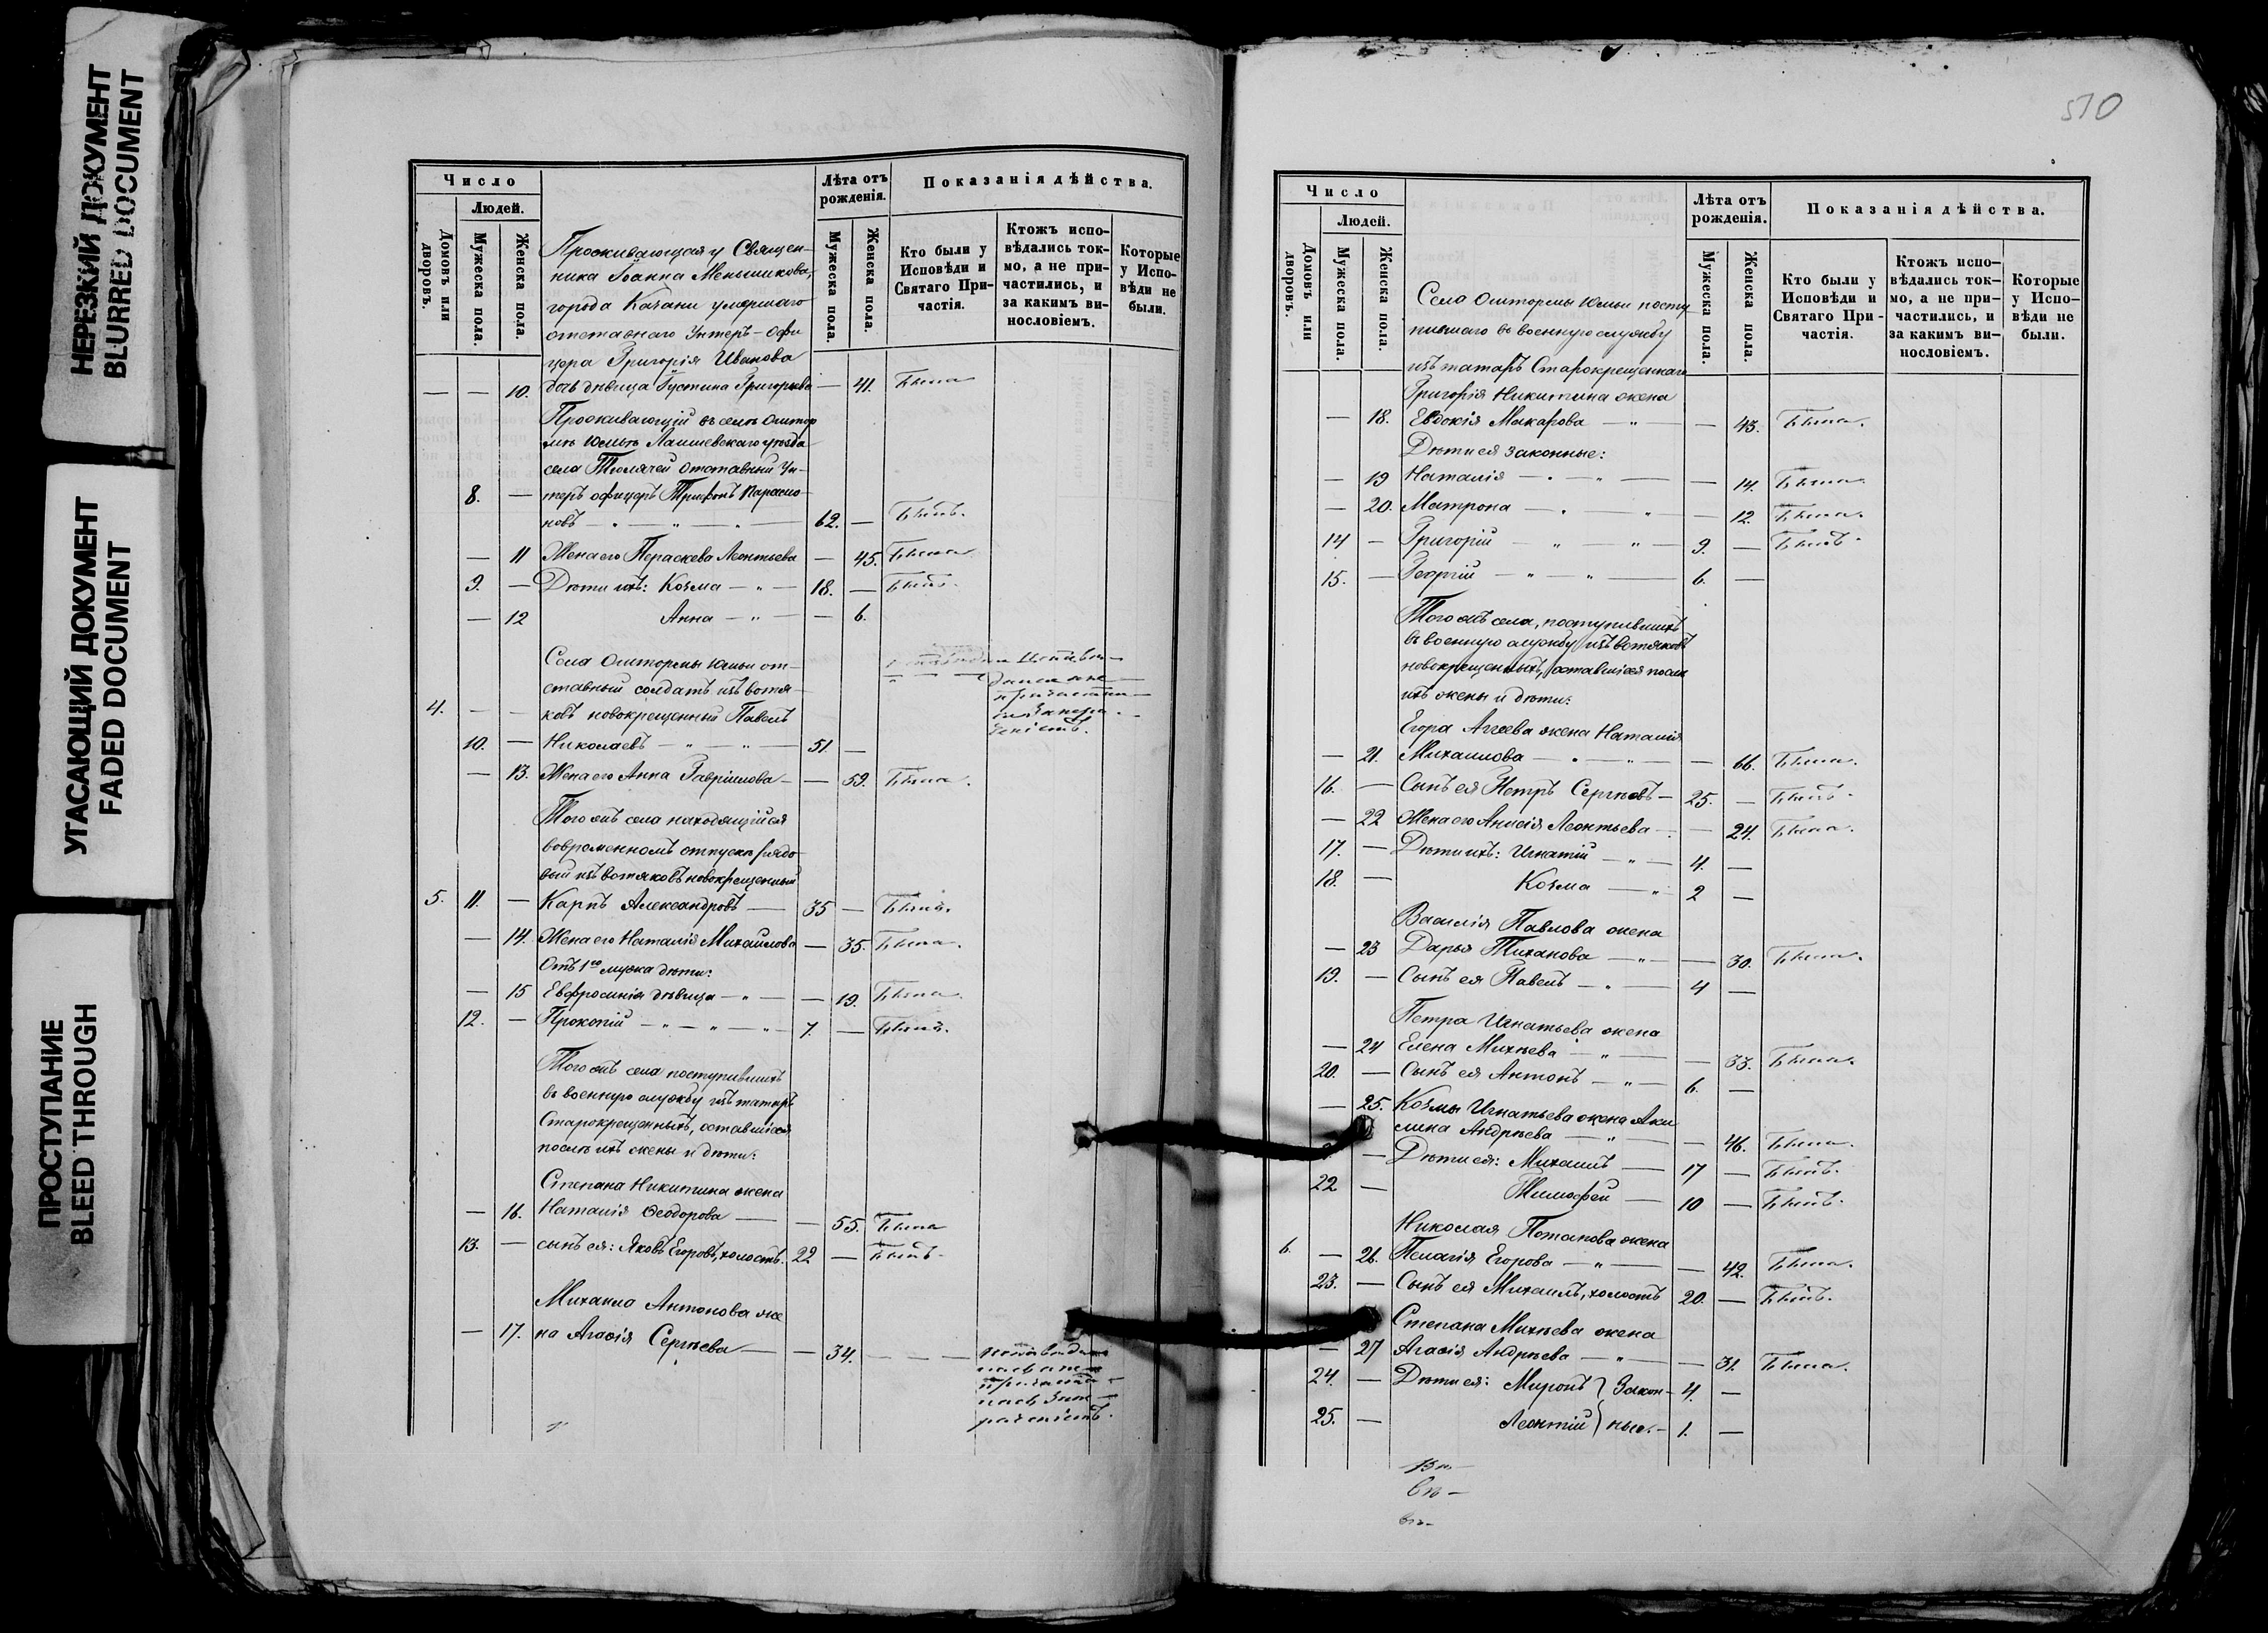 НЕРЕЗКИЙ ДОКУМЕНТ
BLURRED DOCUMENT
УГАСАЮЩИЙ ДОКУМЕНТ
FADED DOCUMENT
ПРОСТУПАНИЕ
BLEED THROUGH
Число
Людей.
Домовъ или дворовъ.
Мужеска пола.
Женска пола.
Лѣта отъ рожденія.
Мужеска пола.
Женска пола.
Показанія дѣйства.
Кто были у Исповѣди и Святаго Причастія.
Ктожъ исповѣдались токмо, а не причастились, и за какимъ винословіемъ.
Которые у Исповѣди не были.
Проживающая у Священ-
ника Іоанна Меньшикова,
города Казани умершаго
отставнаго Унтеръ-офи
цера Григорія Иванова
— — 10. дочь дѣвица Іустина Григорьева — 41. Была
Проживающій въ селѣ Оштор
мѣ Юмьѣ Лаишевскаго уѣзда
села Тюлячей отставный Ун-
8. — теръ офицеръ Трифонъ
новъ — „ — „ — „ — 62. — Былъ.
— 11 Жена его Параскева Леонтьева — 45. Была
9. — Дѣти ихъ: Козма — „ — 18. — Былъ.
— 12 Анна — „ — — 6.
Села Оштормы Юмьи от-
ставный солдатъ изъ вотя-
4. — — ковъ новокрещенный Павелъ
10. — Николаевъ — „ — „ — 51. —
— 13. Жена его Анна Гавріилова — — 59. Была.
Того жъ села находящійся
во временномъ отпускѣ рядо
вый изъ вотяковъ новокрещенный
5. 11. — Карпъ Александровъ — 35 — Былъ.
— 14. Жена его Наталія Михайлова — 35. Была.
Отъ 1го мужа дѣти:
— 15 Евфросинія дѣвица — „ — — 19. Была.
12. — Прокопій — „ — „ — „ — 7. — Былъ.
Того жъ села поступившихъ
въ военную службу изъ татаръ
Старокрещенныхъ, оставшіеся
послѣ ихъ жены и дѣти:
Степана Никитина жена
— 16. Наталія Ѳеодорова — — 55. Была
13. — сынъ ея: Яковъ Егоровъ, холостъ. 22 — Былъ.
Михаила Антонова же
— 17. на Агафія Сергѣева — — 34. — — —
510
Число
Людей.
Домовъ или дворовъ.
Мужеска пола.
Женска пола.
Лѣта отъ рожденія.
Мужеска пола.
Женска пола.
Показанія дѣйства.
Кто были у Исповѣди и Святаго Причастія.
Ктожъ исповѣдались токмо, а не причастились, и за какимъ винословіемъ.
Которые у Исповѣди не были.
Села Оштормы Юмьи посту
пившаго въ военную службу
изъ татаръ Старокрещенаго
Григорія Никитина жена
— 18. Евдокія Макарова — „ — — 43. Была.
Дѣти ея законные:
— 19 Наталія — „ — „ — — 14. Была.
— 20. Матрона — „ — „ — — 12. Была.
14 — Григорій — „ — „ — 9. — Былъ.
15. — Георгій — „ — „ — 6. —
Того жъ села, поступившихъ
въ военную службу изъ вотяковъ
новокрещенныхъ, оставшіеся послѣ
ихъ жены и дѣти:
Егора Агѣева жена Наталія
— 21. Михаилова — „ — „ — — 66. Была.
16. — Сынъ ея Петръ Сергѣевъ — 25. — Былъ.
— 22 Жена его Анисія Леонтьева — — 24. Была.
17. — Дѣти ихъ: Игнатій — „ — 4. —
18. — Козма — „ 2 —
Василія Павлова жена
— 23 Дарья Тиханова — „ — — 30. Была.
19. — Сынъ ея Павелъ — „ — 4 —
Петра Игнатьева жена
— 24 Елена Михѣева — „ — — 33. Была.
20. — Сынъ ея Антонъ — „ — 6. —
— 25. Козмы Игнатьева жена Аки
лина Андрѣева — „ — — 46. Была.
— Дѣти ея: Михаилъ — 17 — Былъ.
22 — Тимофей — 10 — Былъ.
Николая Потапова жена
6. — 26. Пелагія Егорова — „ — — 42. Была.
23. — Сынъ ея Михаилъ, холостъ 20. — Былъ.
Степана Михѣева жена
— 27 Агафія Андрѣева — „ — — 31. Была.
24. — Дѣти ея: Миронъ } Закон- 4. —
25. — Леонтій } ные. — 1. —